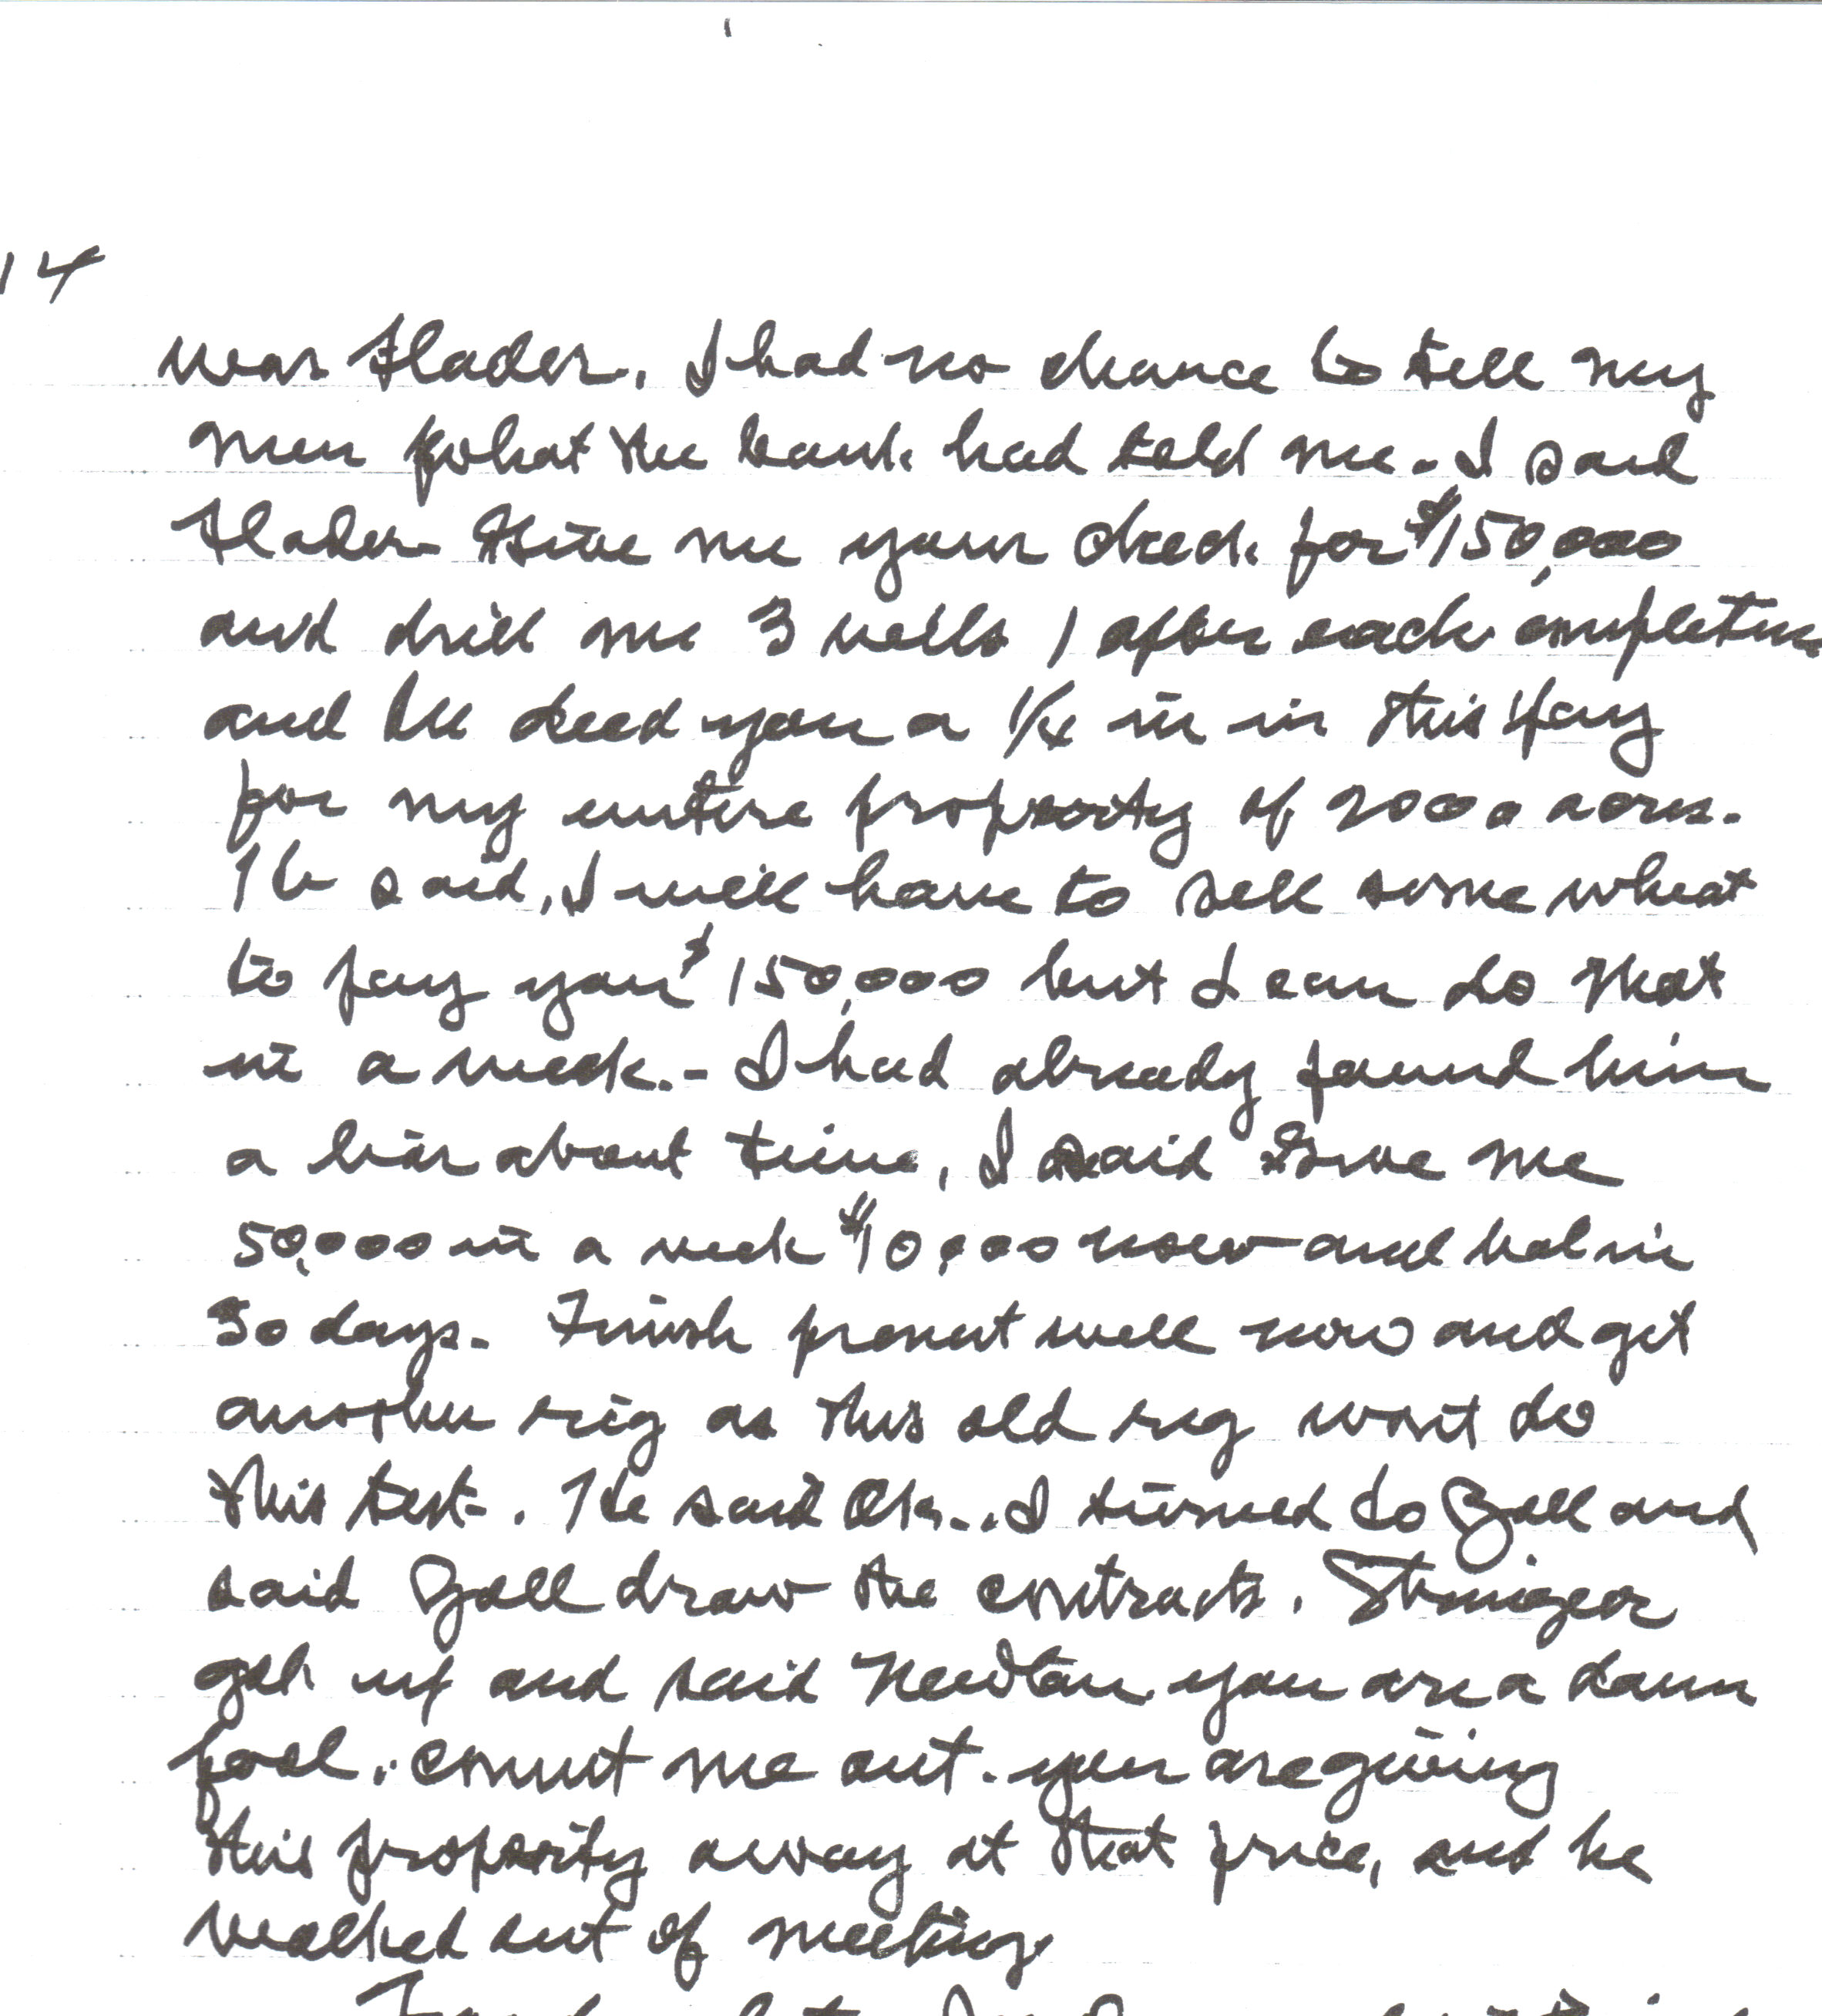 14
was Hader. I had no chance to tell my
men what the bank had told me. I said
Hader Give me your check for $150,000
and drill me 3 wells 1 after each completion
and Ill deed you a 1/4 in in this
for my entire property of 2000 acres.
He said, I will have to sell some wheat
to pay you $150,000 but I can do that
in a week. - I had already found him
a liar about time, I said Give me
50,000 in a week $10,000 now and bal in
30 days. Finish present well now and get
another rig as this old rig wont do
this test. He said Ok.. I turned to Zall and
said Zall draw the contracts. Stringer
got up and said Newton you are a damn
fool. count me out. you are giving
this property away at that price, and he
walked out of meeting